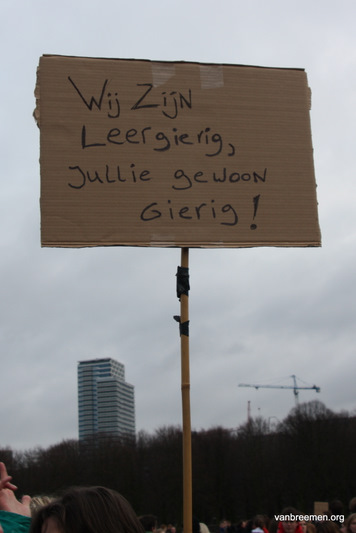 Wij Zijn
Leergierig,
Jullie gewoon
Gierig!
vanbreemen.org